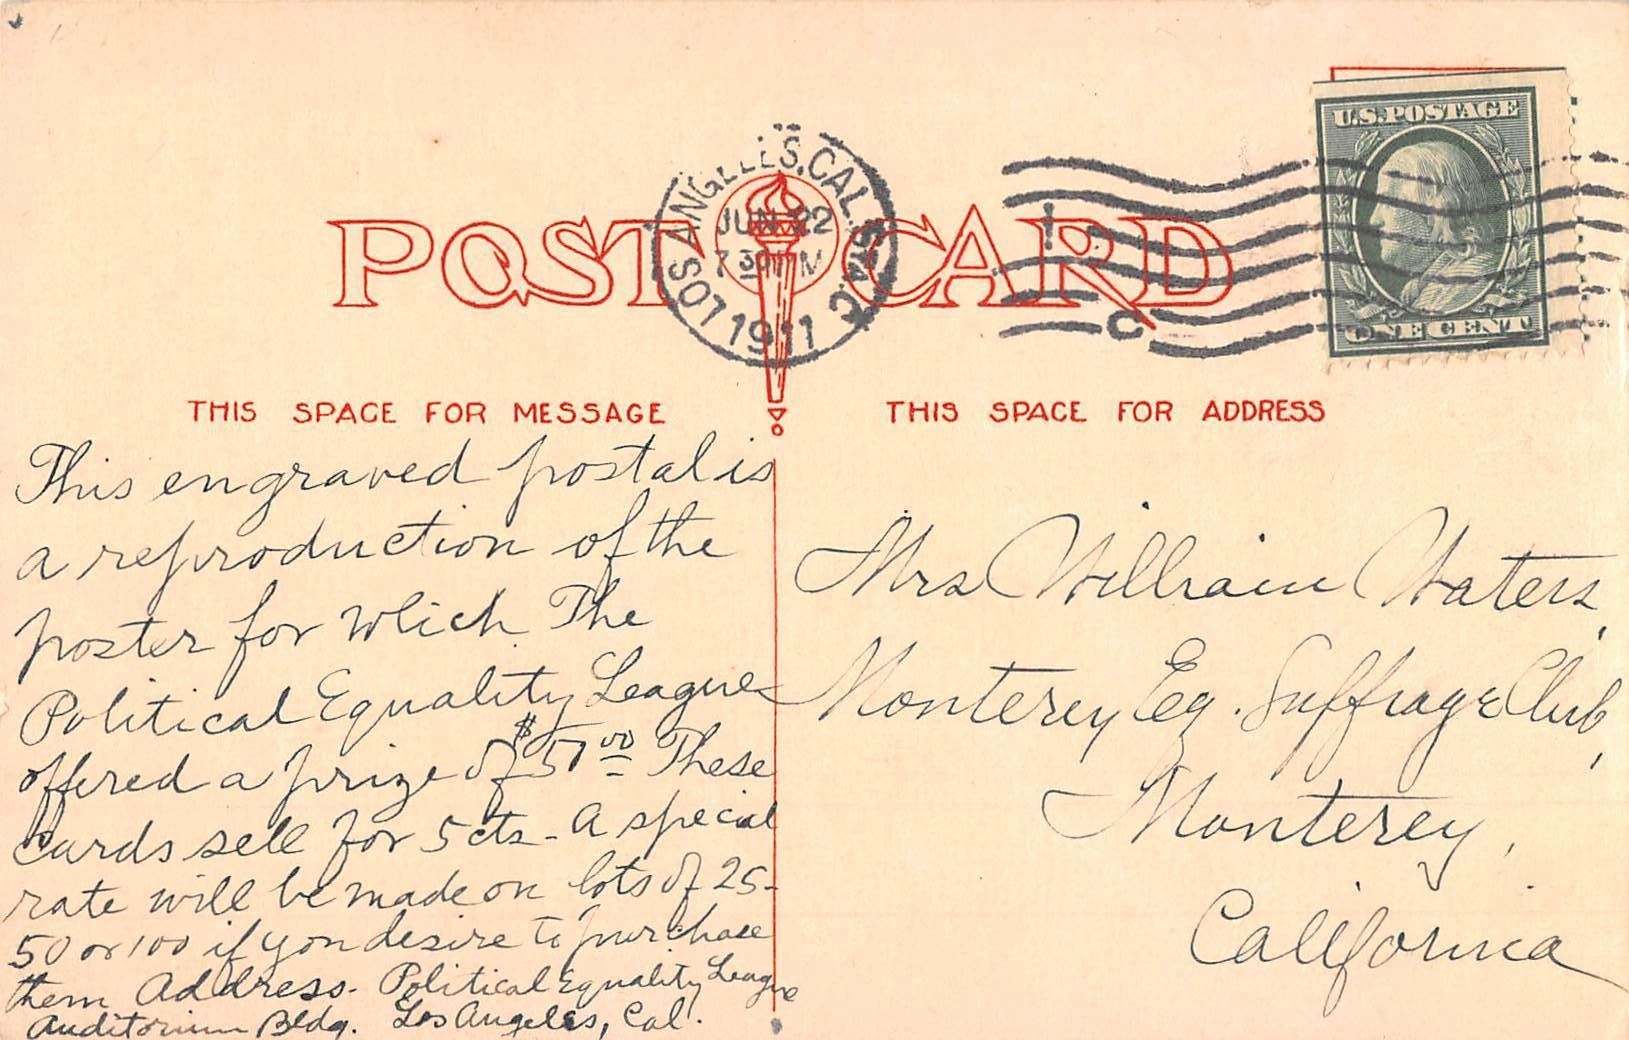 U.S. POSTAGE
ONE CENT
LOS ANGELES, CAL. STA. C.
JUN 22
7 30 P M
1911
C
POST CARD
THIS SPACE FOR MESSAGE
THIS SPACE FOR ADDRESS
This engraved postal is
a reproduction of the
poster for which The
Political Equality League
offered a prize of $50 00 These
cards sell for 5 cts - A special
rate will be made on lots of 25-
50 or 100 if you desire to purchase
them Address - Political Equality League
Auditorium Bldg. Los Angeles, Cal.
Mrs William Waters,
Monterey Eq. Suffrage Club,
Monterey,
California